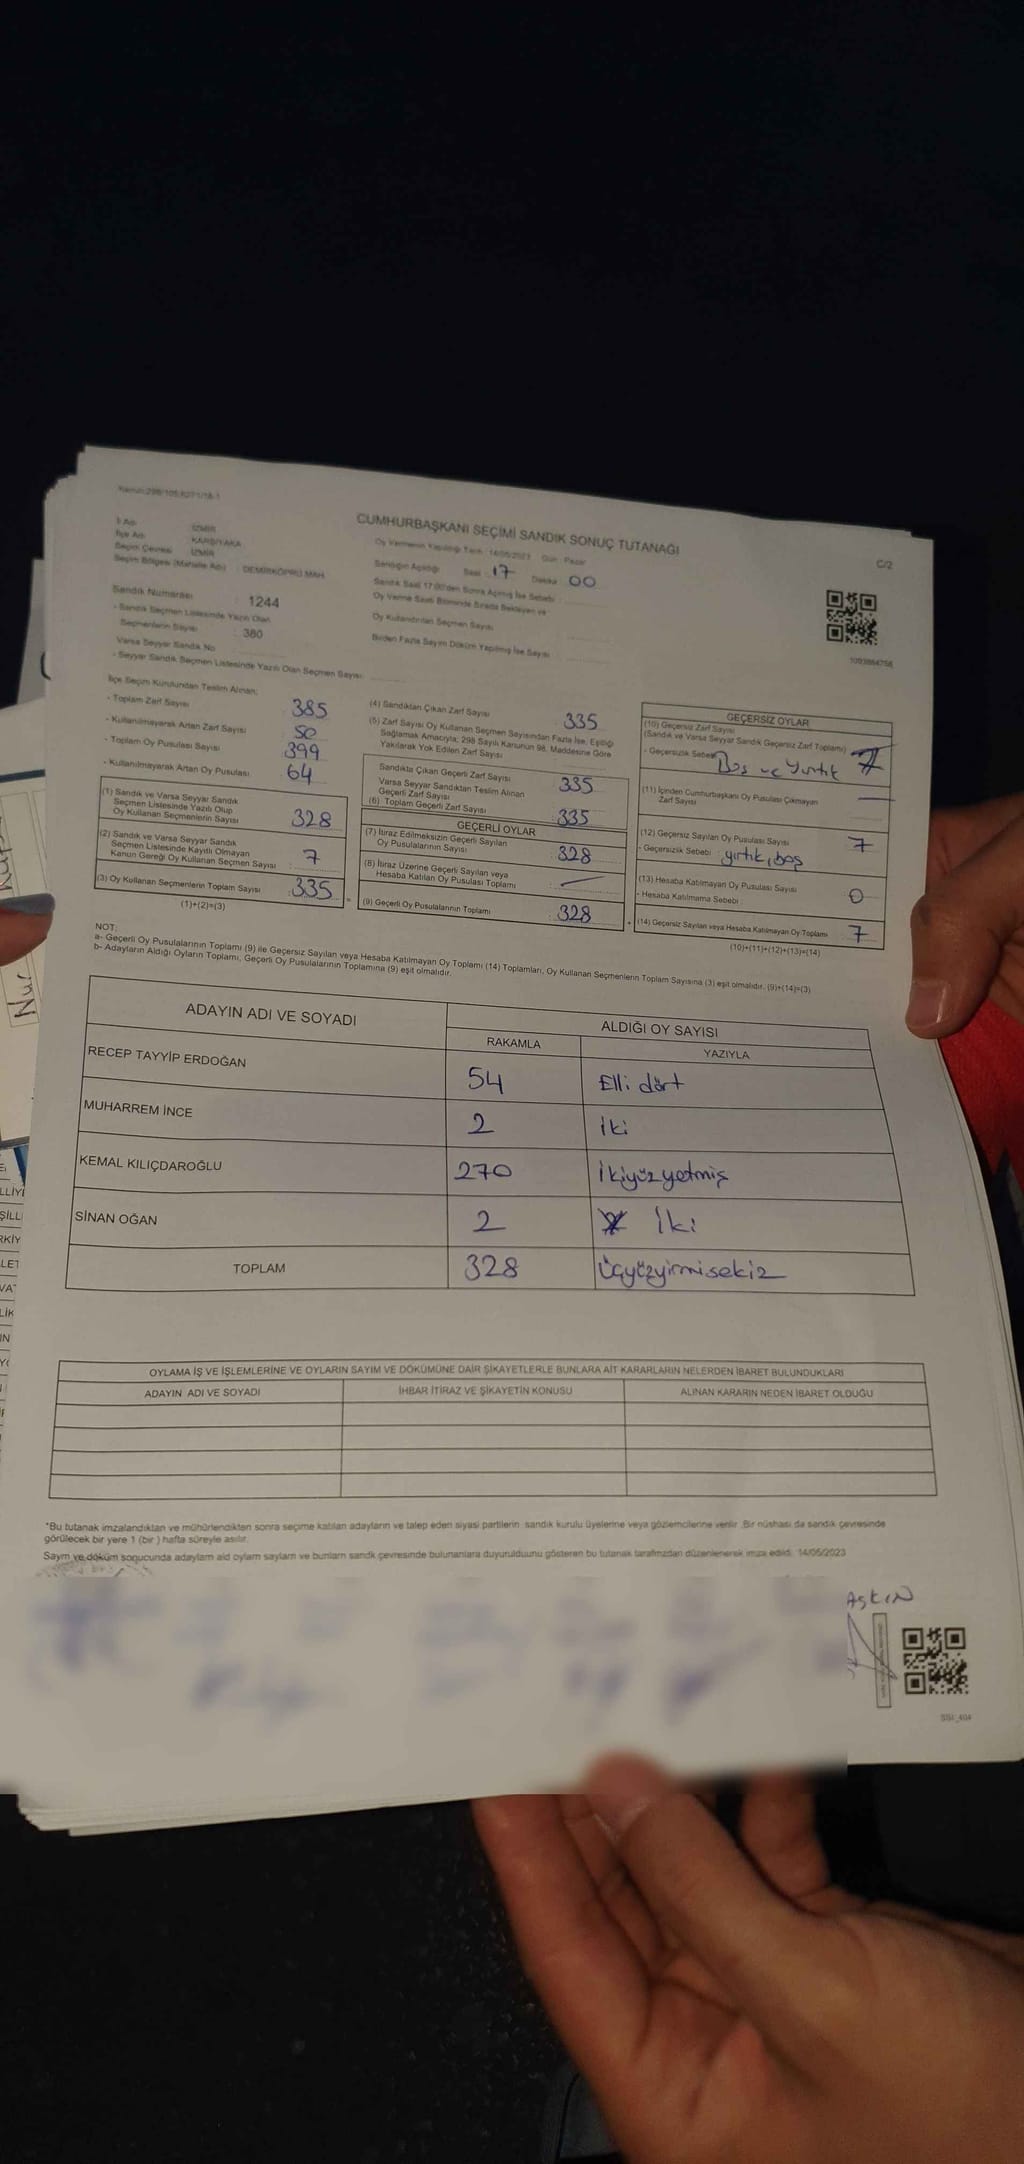 C/2
CUMHURBAŞKANI SEÇİMİ SANDIK SONUÇ TUTANAĞI
Oy Vermenin Yapıldığı Tarih : 14/05/2023 Gün : Pazar
İl Adı : İZMİR
İlçe Adı : KARŞIYAKA
Seçim Çevresi : İZMİR
Seçim Bölgesi (Mahalle Adı) : DEMİRKÖPRÜ MAH.
Sandığın Açıldığı Saat : 17 Dakika : 00
Sandık Saat 17:00'den Sonra Açılmış İse Sebebi :
Oy Verme Saati Bitiminde Sırada Bekleyen ve
Oy Kullandırılan Seçmen Sayısı
Birden Fazla Sayım Döküm Yapılmış İse Sayısı
1093864756
Sandık Numarası : 1244
- Sandık Seçmen Listesinde Yazılı Olan
Seçmenlerin Sayısı : 380
Varsa Seyyar Sandık No
- Seyyar Sandık Seçmen Listesinde Yazılı Olan Seçmen Sayısı
İlçe Seçim Kurulundan Teslim Alınan;
- Toplam Zarf Sayısı : 385
- Kullanılmayarak Artan Zarf Sayısı : 50
- Toplam Oy Pusulası Sayısı : 399
- Kullanılmayarak Artan Oy Pusulası : 64
(1) Sandık ve Varsa Seyyar Sandık
Seçmen Listesinde Yazılı Olup
Oy Kullanan Seçmenlerin Sayısı : 328
(2) Sandık ve Varsa Seyyar Sandık
Seçmen Listesinde Kayıtlı Olmayan
Kanun Gereği Oy Kullanan Seçmen Sayısı : 7
(3) Oy Kullanan Seçmenlerin Toplam Sayısı : 335
(1)+(2)=(3)
(4) Sandıktan Çıkan Zarf Sayısı : 335
(5) Zarf Sayısı Oy Kullanan Seçmen Sayısından Fazla İse, Eşitliği
Sağlamak Amacıyla; 298 Sayılı Kanunun 98. Maddesine Göre
Yakılarak Yok Edilen Zarf Sayısı
Sandıkta Çıkan Geçerli Zarf Sayısı : 335
Varsa Seyyar Sandıktan Teslim Alınan
Geçerli Zarf Sayısı
(6) Toplam Geçerli Zarf Sayısı : 335
GEÇERLİ OYLAR
(7) İtiraz Edilmeksizin Geçerli Sayılan
Oy Pusulalarının Sayısı : 328
(8) İtiraz Üzerine Geçerli Sayılan veya
Hesaba Katılan Oy Pusulası Toplamı : —
(9) Geçerli Oy Pusulalarının Toplamı : 328
GEÇERSİZ OYLAR
(10) Geçersiz Zarf Sayısı
(Sandık ve Varsa Seyyar Sandık Geçersiz Zarf Toplamı)
- Geçersizlik Sebebi : Boş ve Yırtık 7
(11) İçinden Cumhurbaşkanı Oy Pusulası Çıkmayan
Zarf Sayısı —
(12) Geçersiz Sayılan Oy Pusulası Sayısı : 7
- Geçersizlik Sebebi : yırtık, boş
(13) Hesaba Katılmayan Oy Pusulası Sayısı : 0
- Hesaba Katılmama Sebebi :
(14) Geçersiz Sayılan veya Hesaba Katılmayan Oy Toplamı : 7
(10)+(11)+(12)+(13)=(14)
NOT:
a- Geçerli Oy Pusulalarının Toplamı (9) ile Geçersiz Sayılan veya Hesaba Katılmayan Oy Toplamı (14) Toplamları, Oy Kullanan Seçmenlerin Toplam Sayısına (3) eşit olmalıdır. (9)+(14)=(3)
b- Adayların Aldığı Oyların Toplamı, Geçerli Oy Pusulalarının Toplamına (9) eşit olmalıdır.
ADAYIN ADI VE SOYADI
ALDIĞI OY SAYISI
RAKAMLA YAZIYLA
RECEP TAYYİP ERDOĞAN 54 Elli dört
MUHARREM İNCE 2 iki
KEMAL KILIÇDAROĞLU 270 ikiyüzyetmiş
SİNAN OĞAN 2 İki
TOPLAM 328 üçyüzyirmisekiz
OYLAMA İŞ VE İŞLEMLERİNE VE OYLARIN SAYIM VE DÖKÜMÜNE DAİR ŞİKAYETLERLE BUNLARA AİT KARARLARIN NELERDEN İBARET BULUNDUKLARI
ADAYIN ADI VE SOYADI İHBAR İTİRAZ VE ŞİKAYETİN KONUSU ALINAN KARARIN NEDEN İBARET OLDUĞU
*Bu tutanak imzalandıktan ve mühürlendikten sonra seçime katılan adayların ve talep eden siyasi partilerin sandık kurulu üyelerine veya gözlemcilerine verilir. Bir nüshası da sandık çevresinde
görülecek bir yere 1 (bir) hafta süreyle asılır.
Sayım ve döküm sonucunda adayların aldığı oyların sayıları ve bunların sandık çevresinde bulunanlara duyurulduğunu gösteren bu tutanak tarafımızdan düzenlenerek imza edildi. 14/05/2023
AŞKIN
Nur